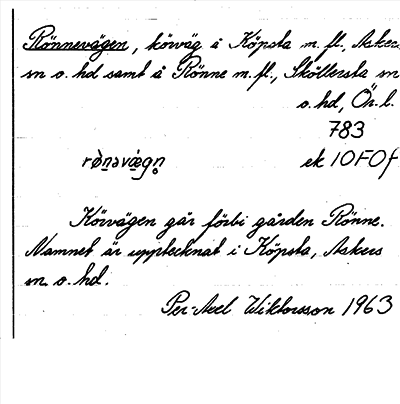 Rönnevägen, körväg å Köpsta m. fl., Askers
sn o. hd samt å Rönne m. fl., Sköllersta sn
o. hd, Ör. l.
783
rö̀nəvǽgn̥ ek 10F0f
Körvägen går förbi gården Rönne.
Namnet är upptecknat i Köpsta, Askers
sn o. hd.
Per-Axel Wiktorsson 1963